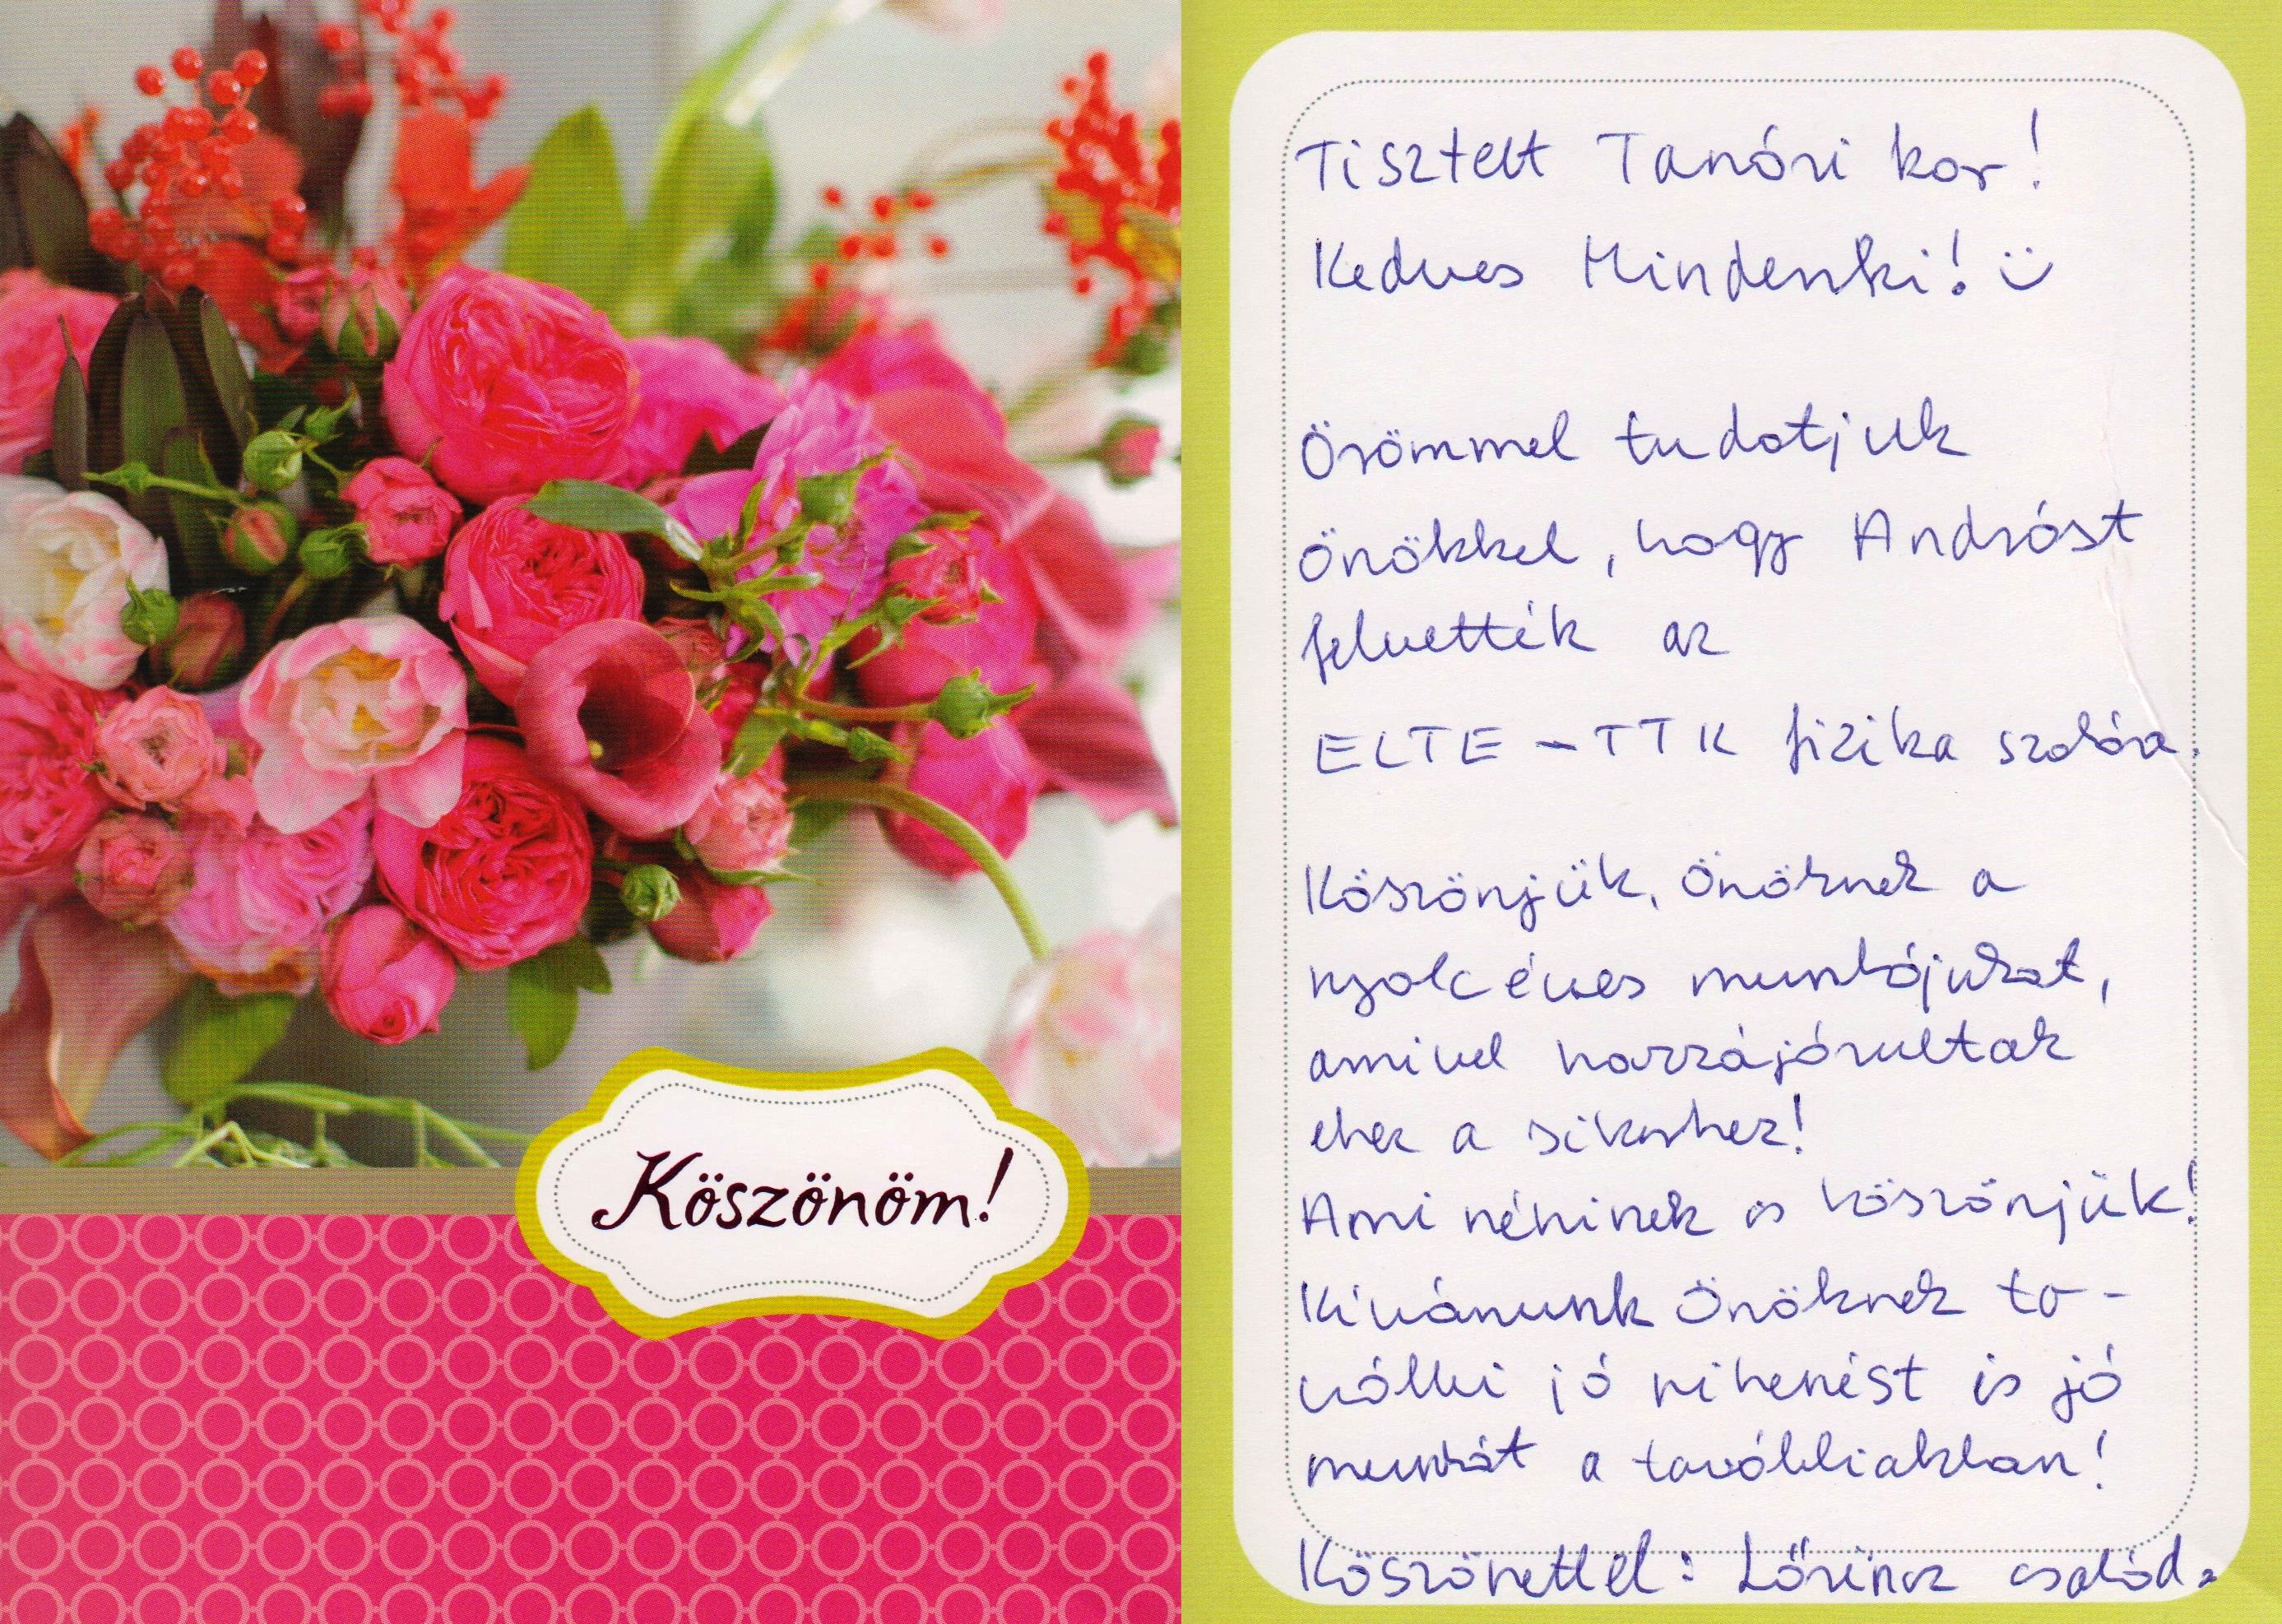 Köszönöm!
Tisztelt Tanári kar!
Kedves Mindenki! :)
Örömmel tudatjuk
Önökkel, hogy Andrást
felvették az
ELTE - TTK fizika szakára.
Köszönjük, Önöknek a
nyolc éves munkájukat,
amivel hozzájárultak
ehez a sikerhez!
Ami néninek is köszönjük!
Kívánunk Önöknek to-
vábbi jó pihenést is jó
munkát a továbbiakban!
Köszönettel: Lőrincz család.